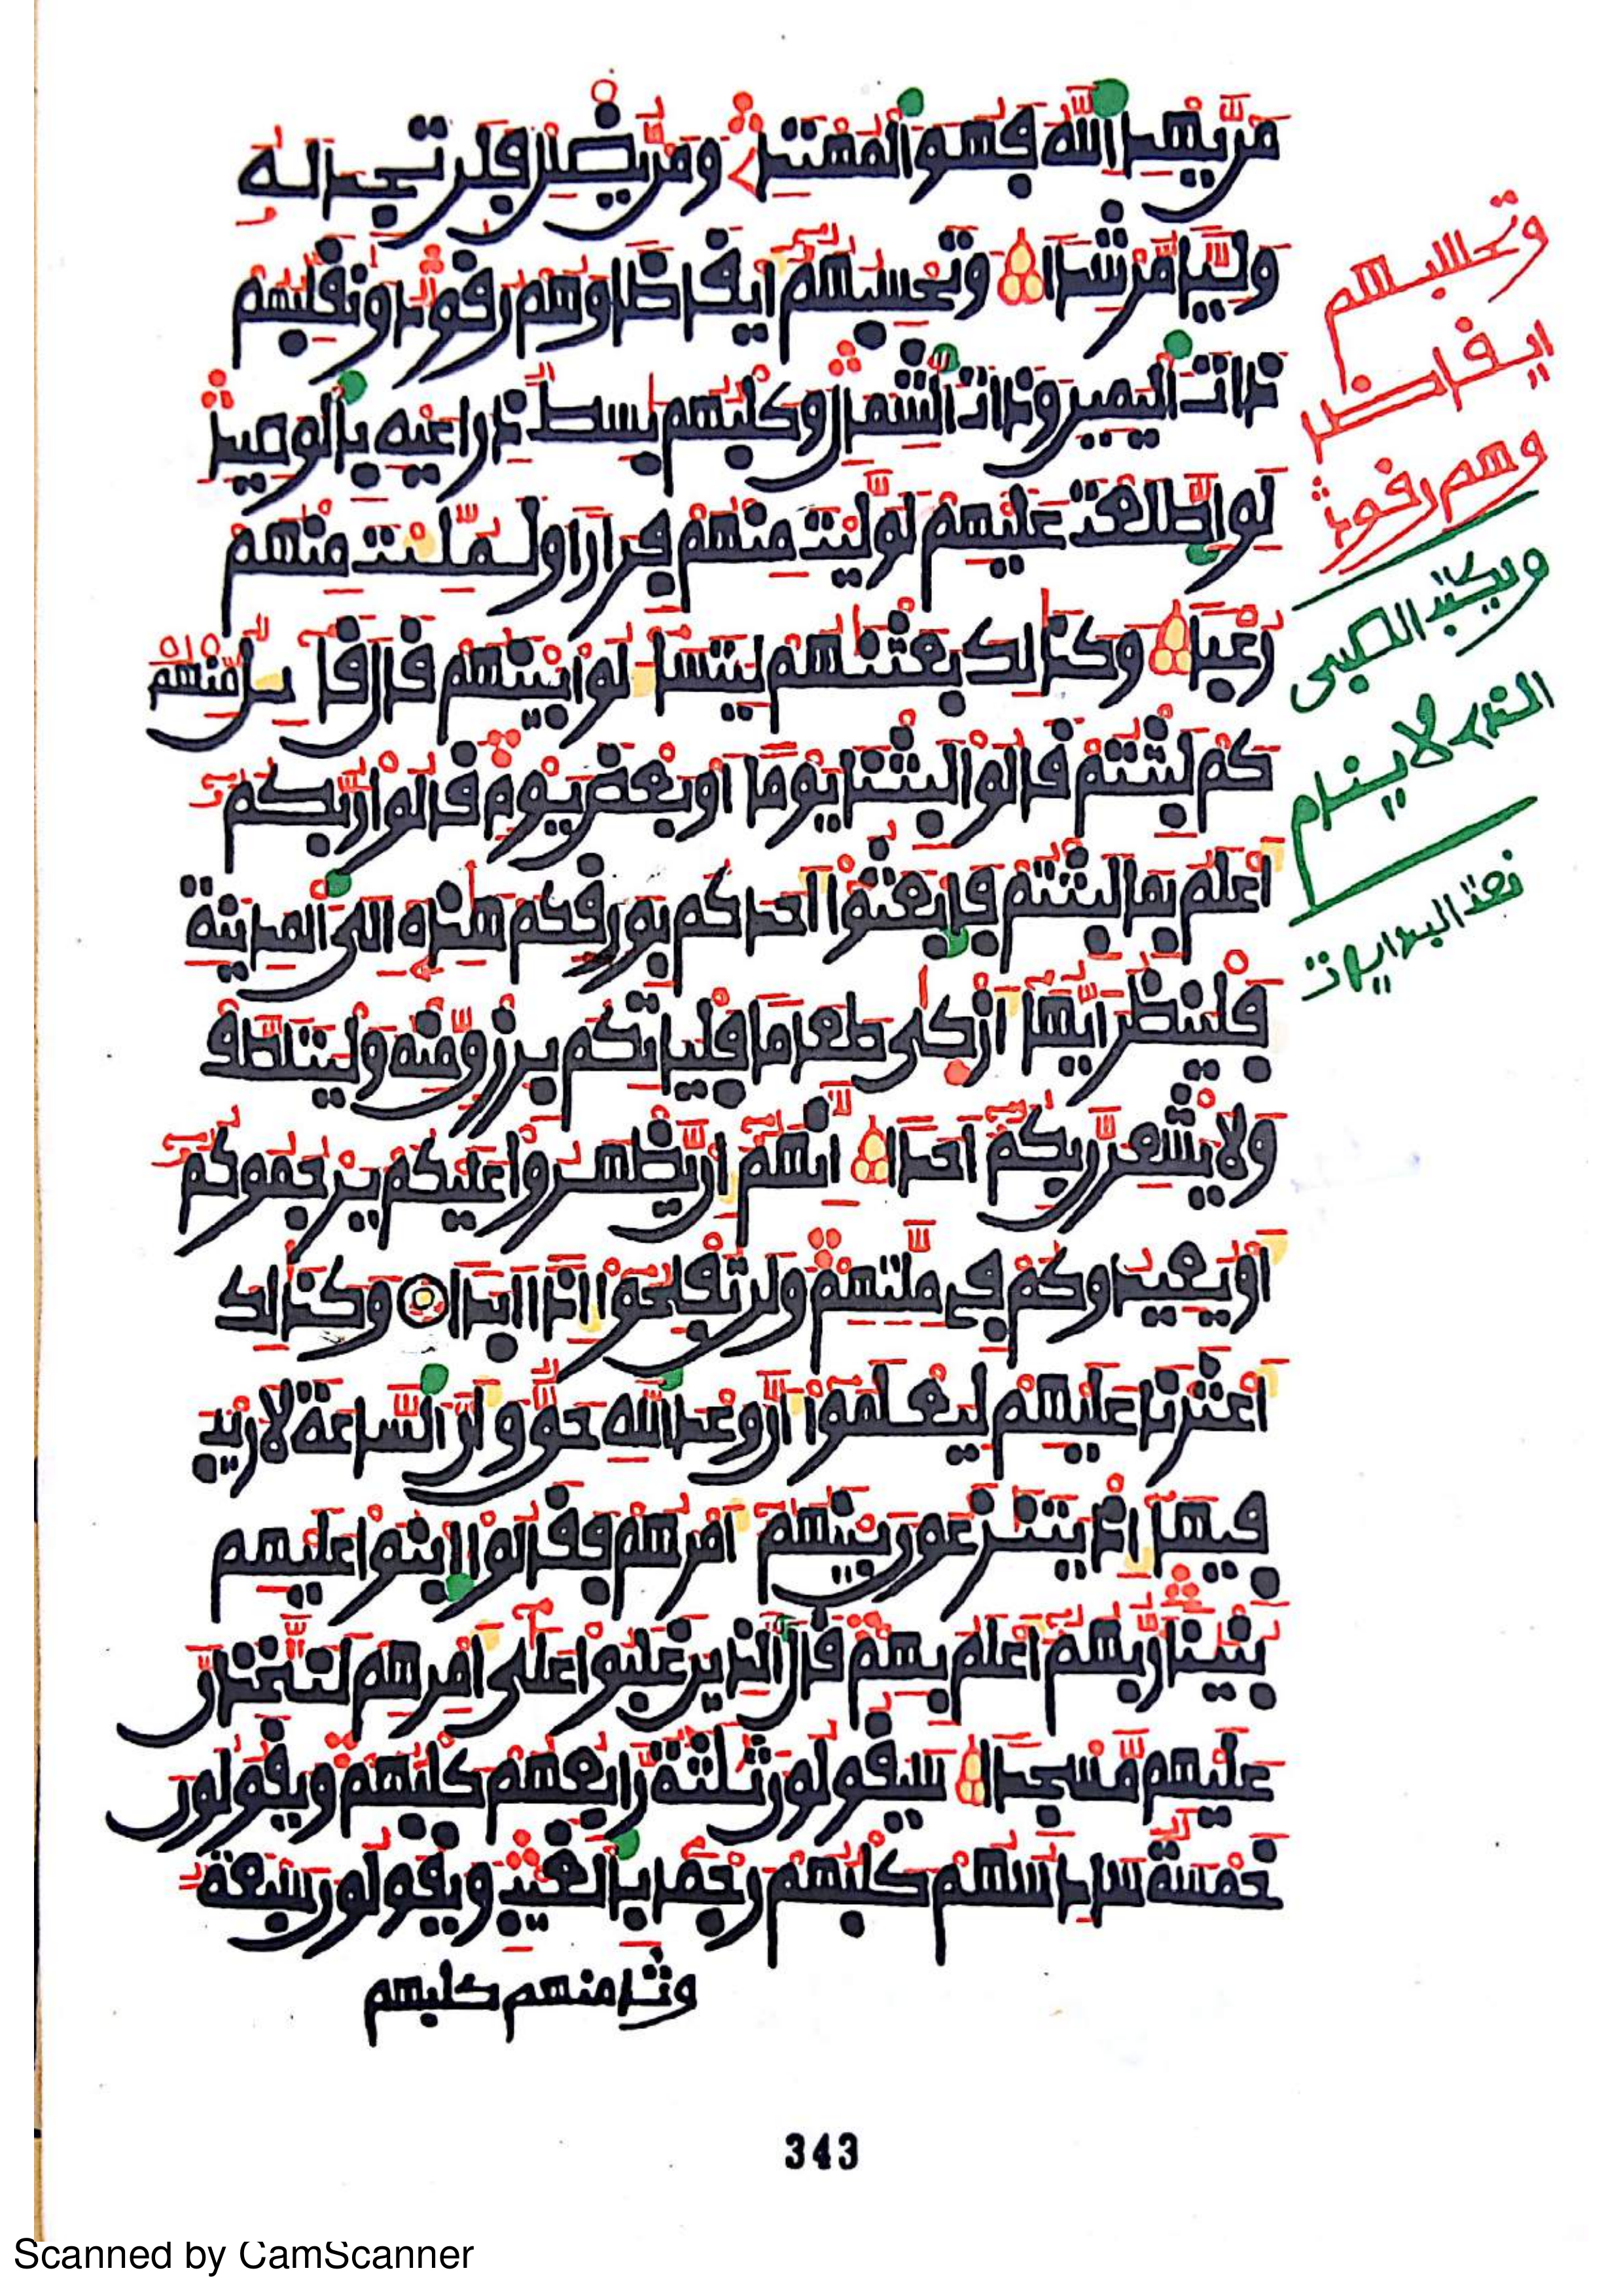 من يهد الله فهو المهتد ومن يضلل فلن تجد له
وليا مرشدا وتحسبهم ايقاظا وهم رقود ونقلبهم
ذات اليمين وذات الشمال وكلبهم بسط ذراعيه بالوصيد
لو اطلعت عليهم لوليت منهم فرارا ولملئت منهم
رعبا وكذلك بعثنهم ليتساءلوا بينهم قال قائل منهم
كم لبثتم قالوا لبثنا يوما او بعض يوم قالوا ربكم
اعلم بما لبثتم فابعثوا احدكم بورقكم هذه الى المدينة
فلينظر ايها ازكى طعاما فلياتكم برزق منه وليتلطف
ولا يشعرن بكم احدا انهم ان يظهروا عليكم يرجموكم
او يعيدوكم في ملتهم ولن تفلحوا اذا ابدا وكذلك
اعثرنا عليهم ليعلموا ان وعد الله حق وان الساعة لا ريب
فيها اذ يتنزعون بينهم امرهم فقالوا ابنوا عليهم
بنينا ربهم اعلم بهم قال الذين غلبوا على امرهم لنتخذن
عليهم مسجدا سيقولون ثلثة رابعهم كلبهم ويقولون
خمسة سادسهم كلبهم رجما بالغيب ويقولون سبعة
وثامنهم كلبهم
وتحسبهم
ايقاظا
وهم رقود
ويكتب
الذي لا ينام
343
Scanned by CamScanner